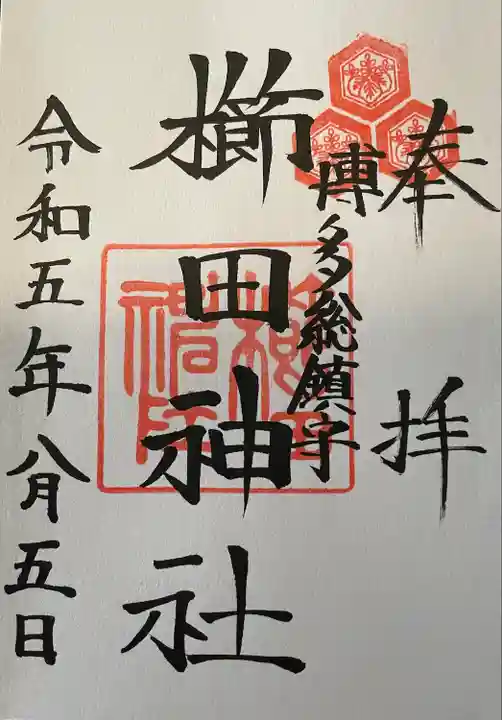 奉拝
博多総鎮守
櫛田神社
令和五年八月五日